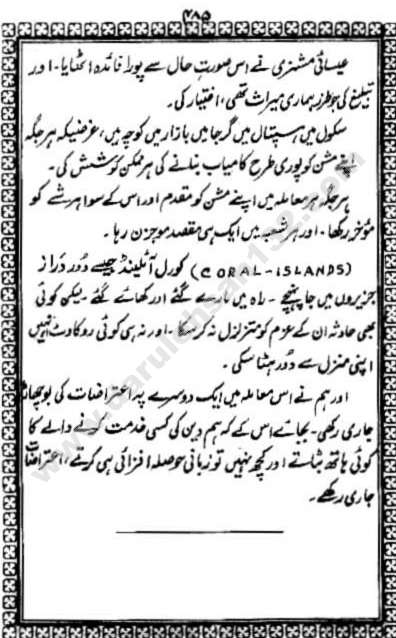 ۴۸۵
عیسائی مشنری نے اس صورتِ حال سے پورا فائدہ اٹھایا ۔ اور
تبلیغ کی جو طرز ہماری میراث تھی ، اختیار کی ۔
سکول میں ہسپتال میں گرجا میں بازار میں کوچہ میں ، غرضیکہ ہر جگہ
اپنے مشن کو پوری طرح کامیاب بنانے کی ہر ممکن کوشش کی ۔
ہر جگہ ہر معاملہ میں اپنے مشن کو مقدم اور اس کے سوا ہر شے کو
مؤخر رکھا ۔ اور ہر شعبہ میں ایک ہی مقصد موجزن رہا ۔
(CORAL-ISLANDS) کورل آئلینڈ جیسے دور دراز
جزیروں میں جا پہنچے ۔ راہ میں مارے گئے اور کھائے گئے لیکن کوئی
بھی حادثہ ان کے عزم کو متزلزل نہ کر سکا ، اور نہ ہی کوئی روکاوٹ انہیں
اپنی منزل سے دور ہٹا سکی ۔
اور ہم نے اس معاملہ میں ایک دوسرے پہ اعتراضات کی بوچھاڑ
جاری رکھی ۔ بجائے اس کے کہ ہم دین کی کسی خدمت کرنے والے کا
کوئی ہاتھ بٹاتے اور کچھ نہیں تو زبانی حوصلہ افزائی ہی کرتے ، اعتراضات
جاری رکھے ۔
www.darulehsan132.com